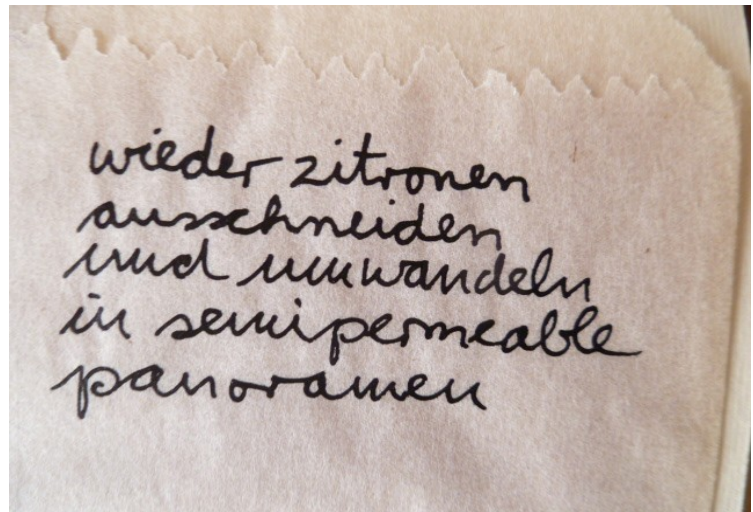 wieder zitronen
ausschneiden
und umwandeln
in semipermeable
panoramen